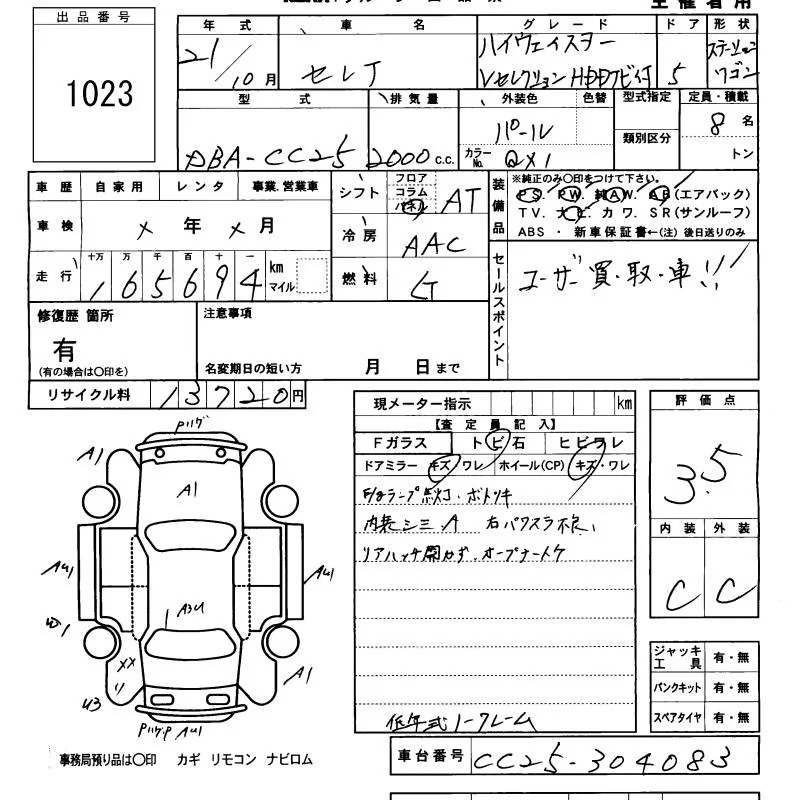 出品番号
1023
年式 車名 グレード ドア 形状
21/10月 セレナ ハイウェイスター Vセレクション HDDナビ付 5 ステーションワゴン
型式 排気量 外装色 色替 型式指定 定員・積載
DBA-CC25 2000c.c. パール 類別区分 8名
カラーNo. QX1 トン
車歴 自家用 レンタ 事業.営業車
シフト フロア コラム パネル AT
車検 ×年×月
冷房 AAC
走行 十万 万 千 百 十 一
165694 km マイル
燃料 G
装備品
※純正のみ○印をつけて下さい。
PS. PW. 純AW. AB(エアバック)
TV. ナビ. カワ. SR(サンルーフ)
ABS・新車保証書←(注)後日送りのみ
セールスポイント
ユーザー買・取・車!!
修復歴 箇所
有
(有の場合は○印を)
注意事項
名変期日の短い方 月 日まで
リサイクル料 13720円
現メーター指示 km
【査定員記入】
Fガラス トビ石 ヒビワレ
ドアミラー キズ/ワレ ホイール(CP) キズ・ワレ
内装シミA 右パワスラ不良、
リアハッチ開かず、オープナー
低年式ノークレーム
評価点
3.5
内装 外装
C C
ジャッキ工具 有・無
パンクキット 有・無
スペアタイヤ 有・無
A1
A1
AU1
AU1
A3U
W1
XX
U3
A1
AU1
事務局預り品は○印 カギ リモコン ナビロム
車台番号 CC25-304083